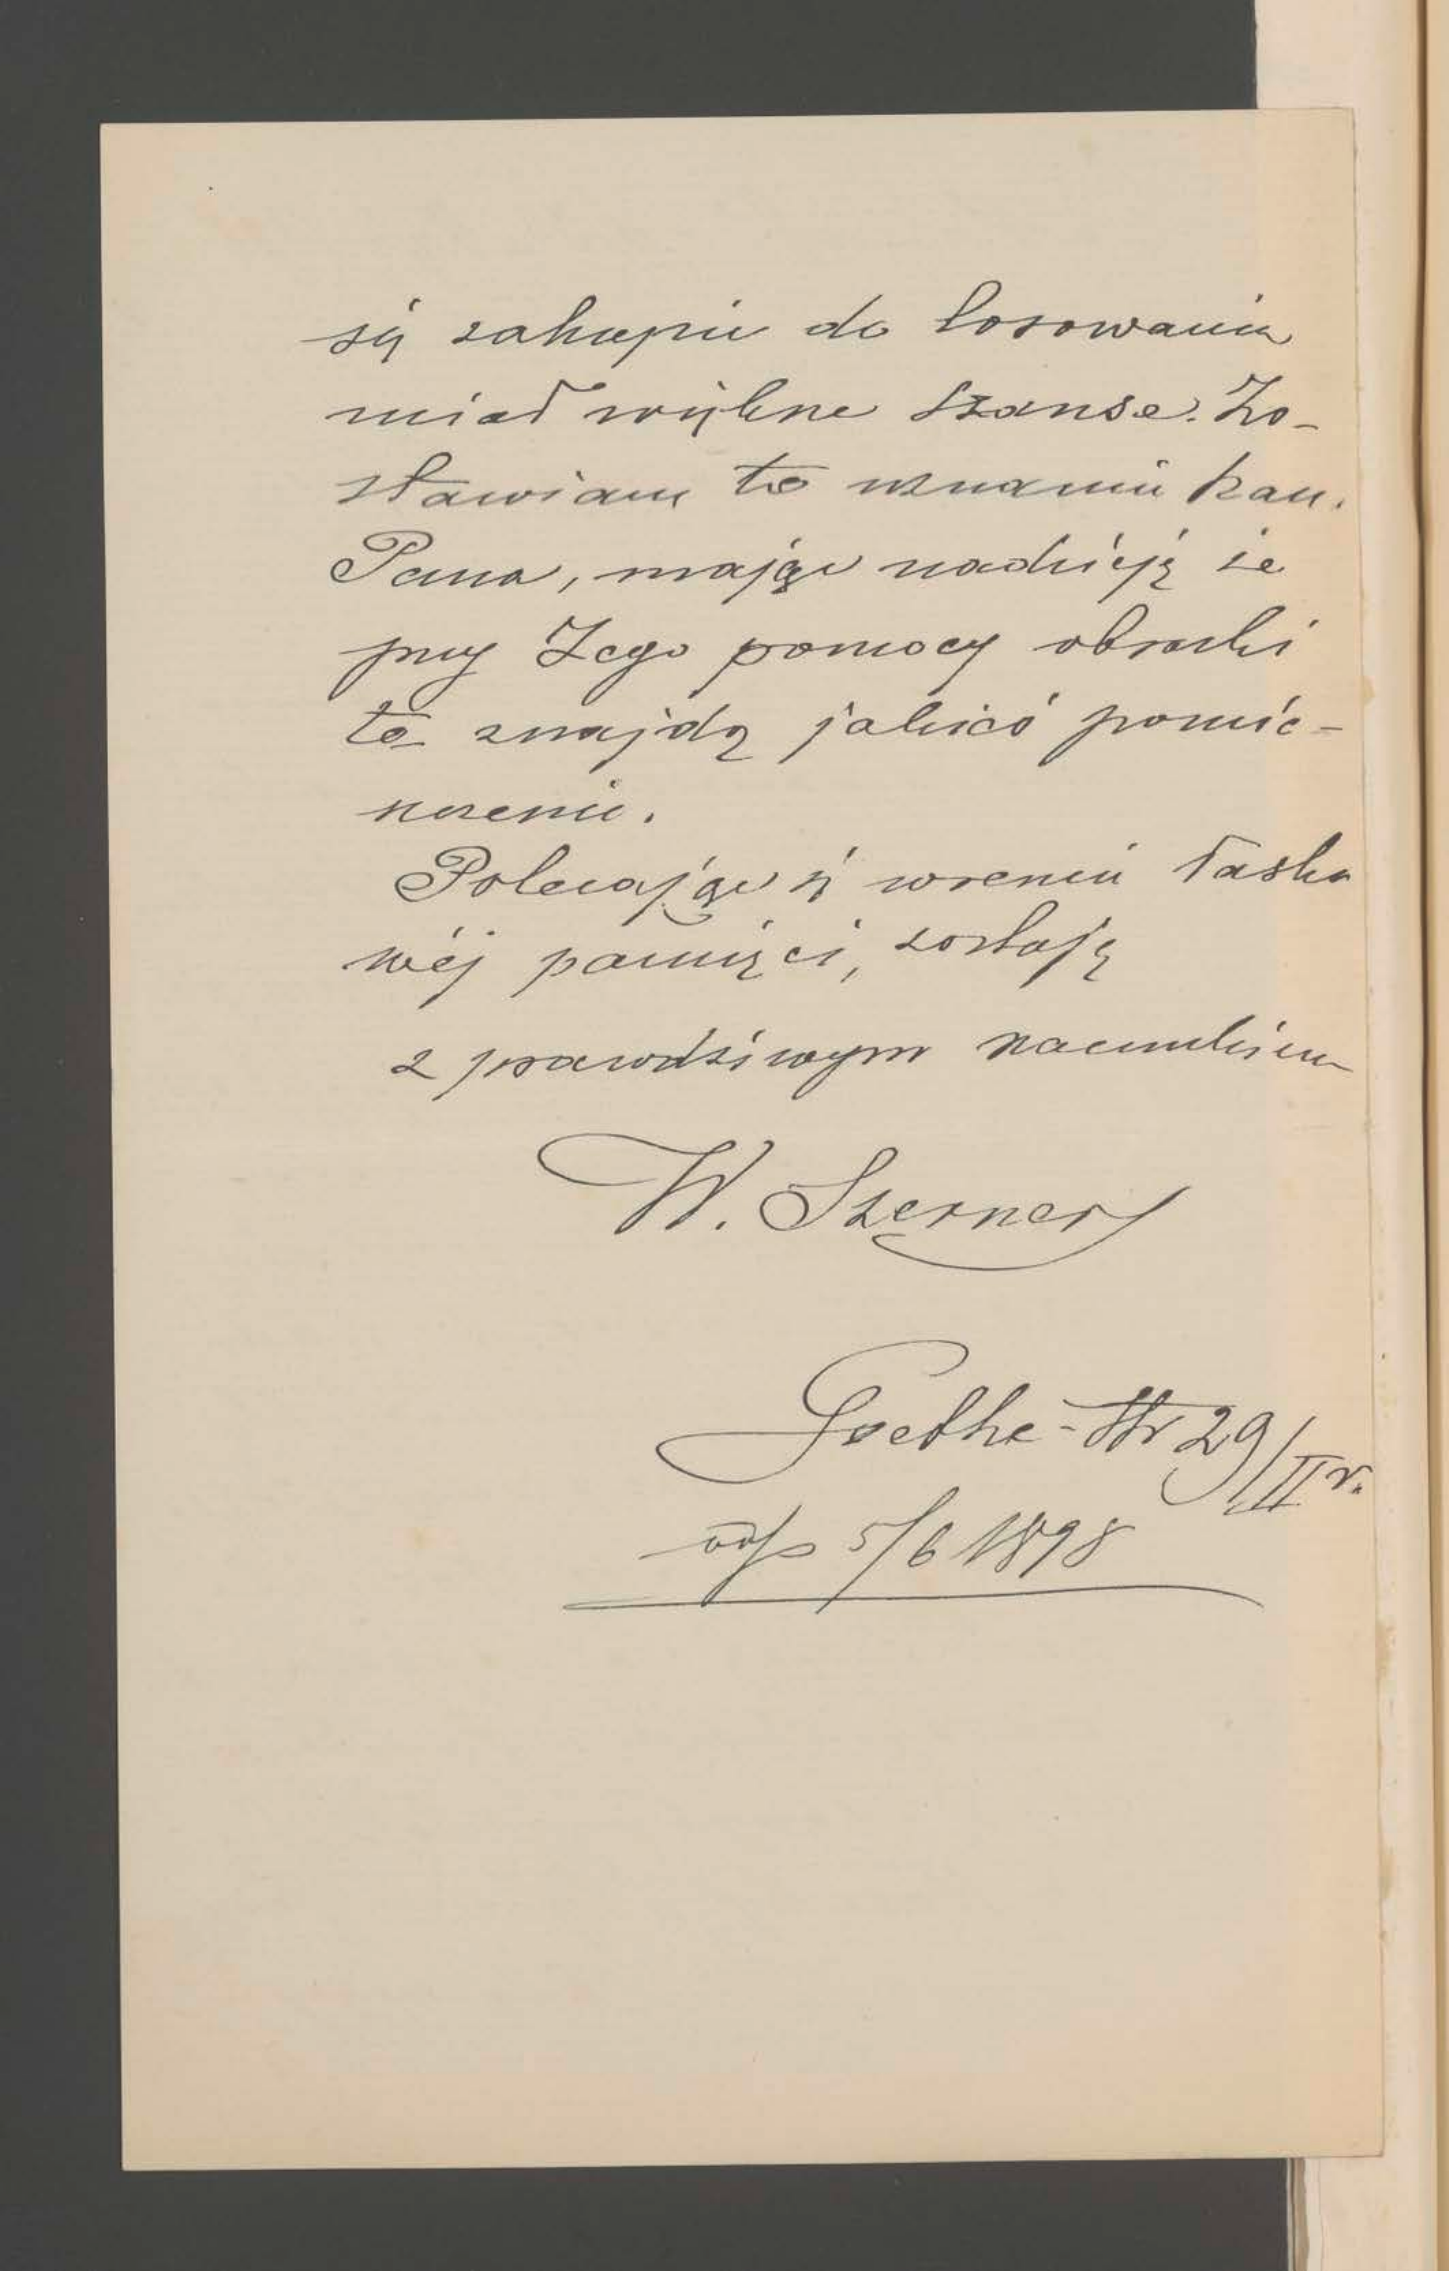 się zakupie do losowania
miał większe szanse. Zo-
stawiam to uznaniu Kan.
Pana, mając nadzieję że
przy Jego pomocy obrazki
te znajdą jakieś pomie-
szczenie.
Polecając się wreszcie łaska
wéj pamięci, zostaję
z prawdziwym szacunkiem
W. Szerner
Goethe-Str 29/II r.
odp 5/6 1898